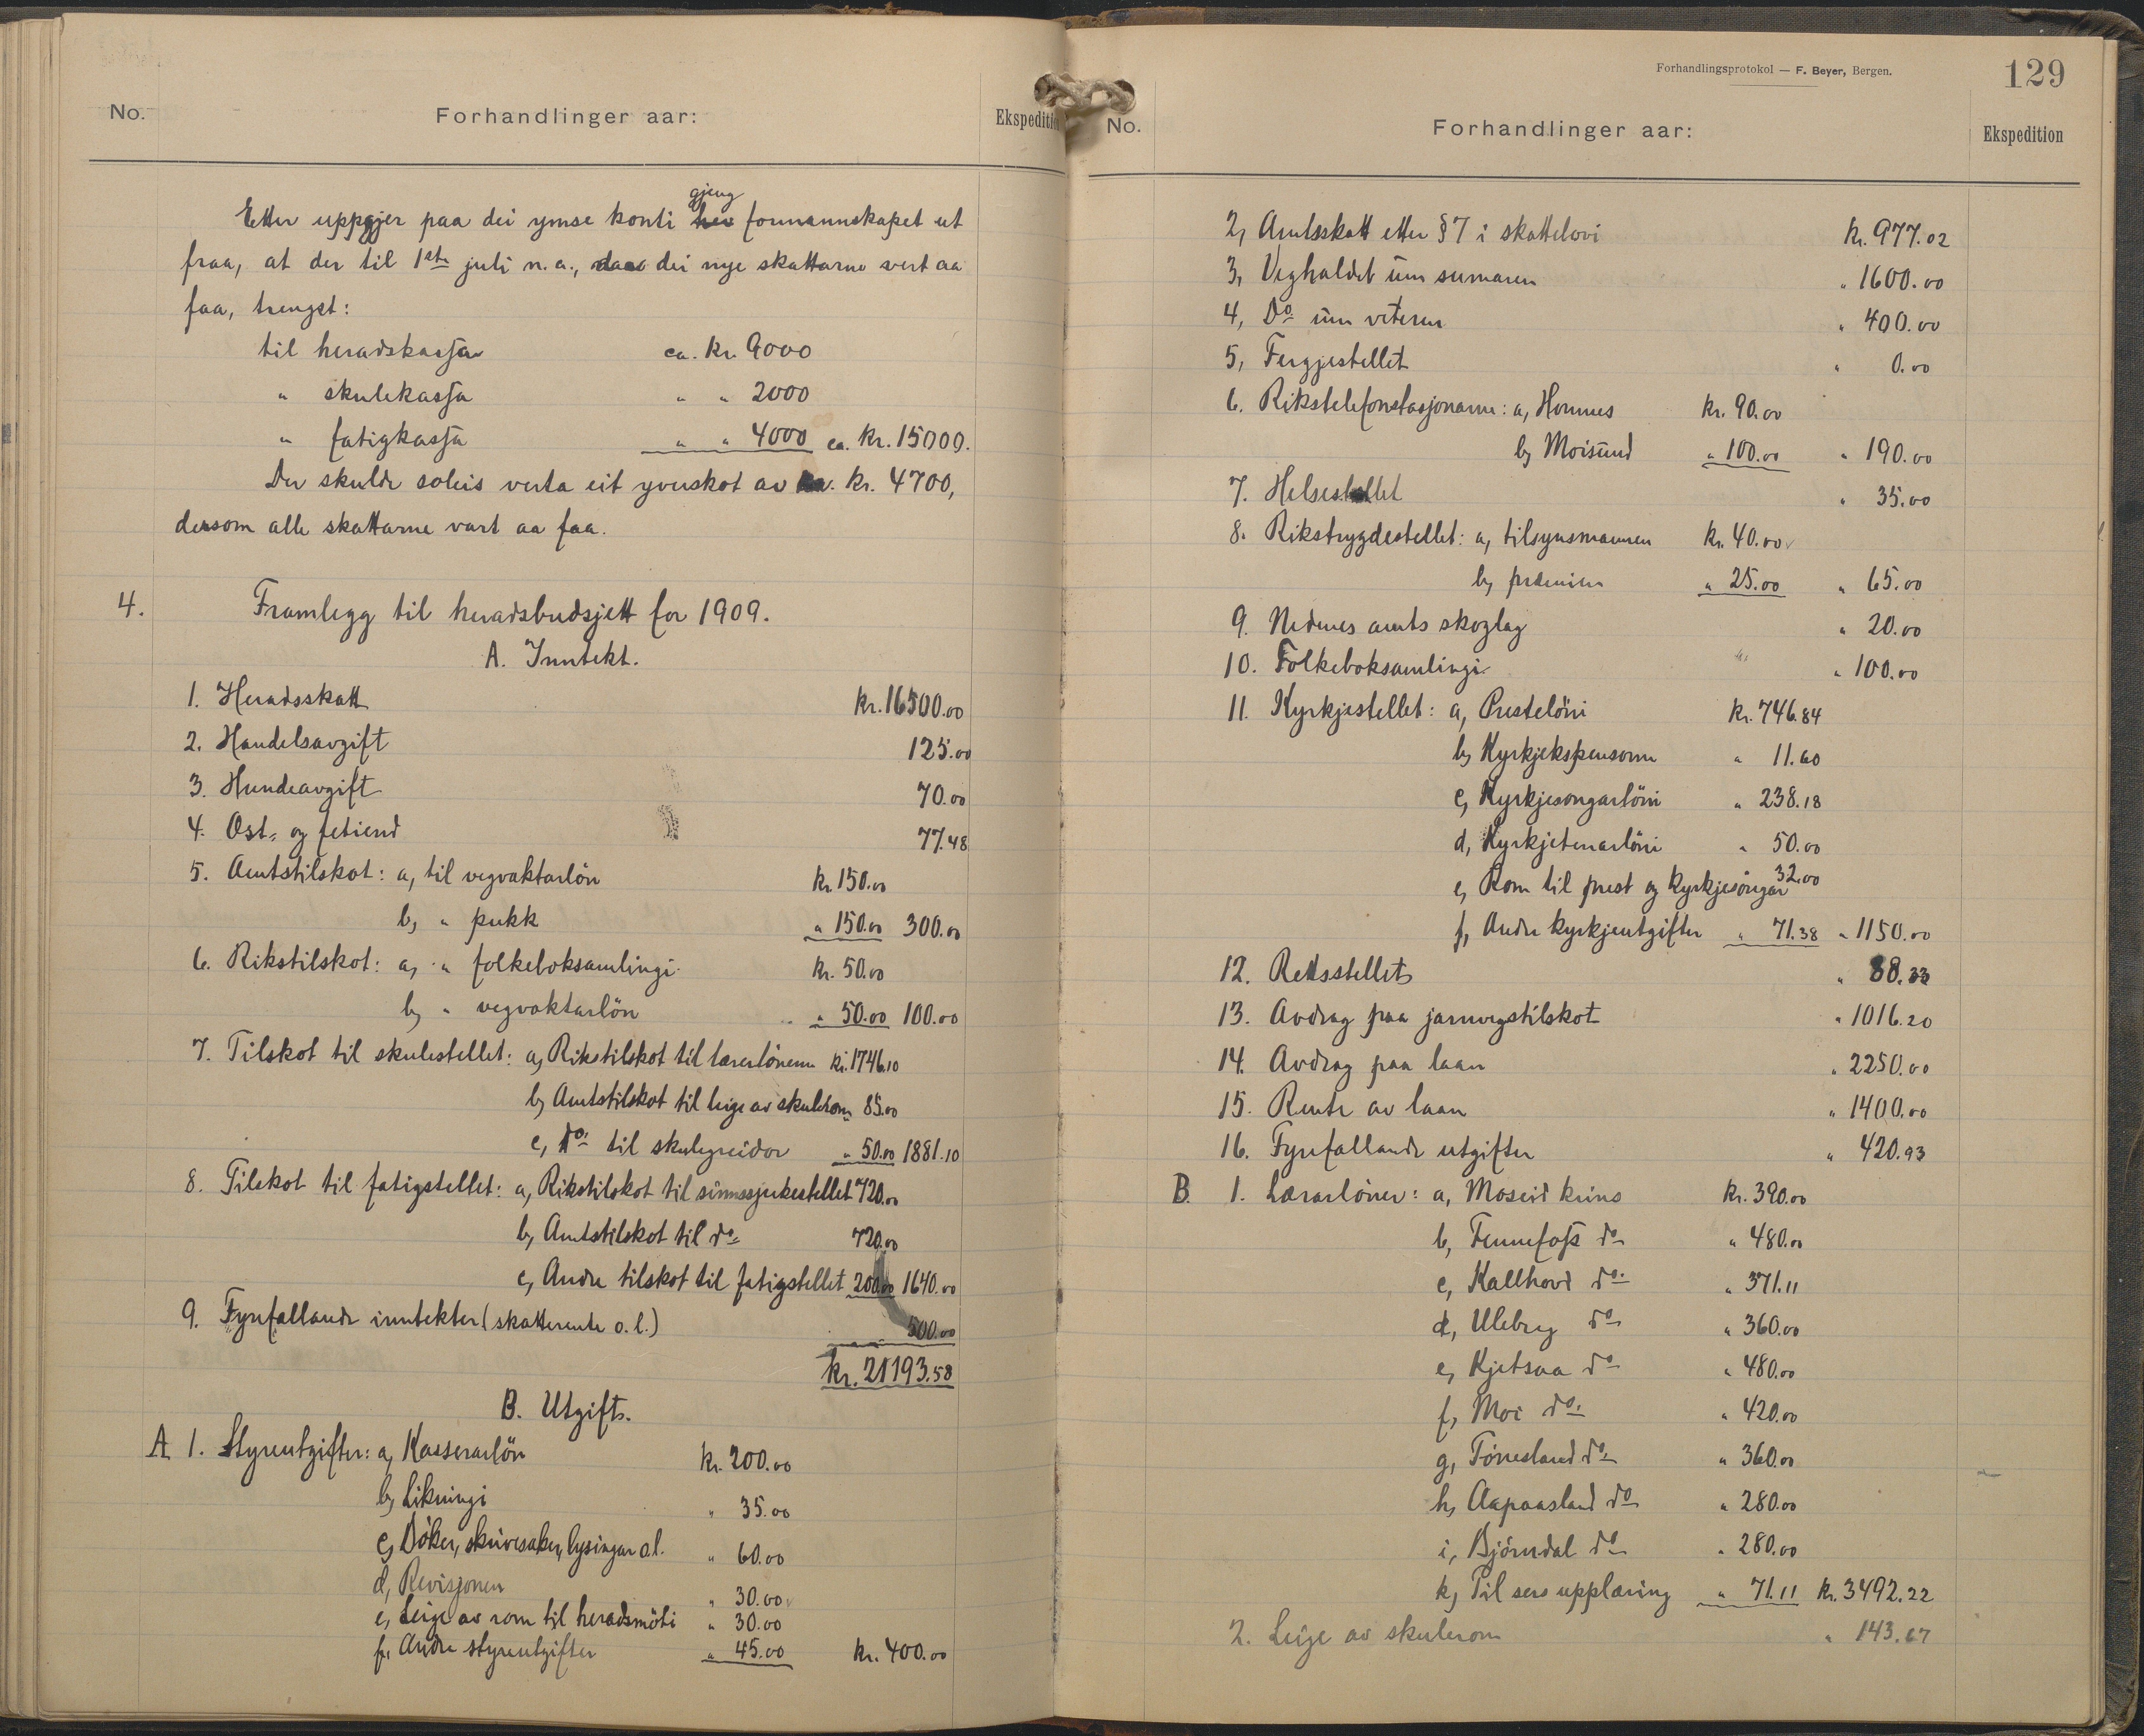 No.
Forhandlinger aar:
Ekspedition
Etter uppgjer paa dei ymse konti gjeng formannskapet ut
fraa, at der til 1ste juli n. a., daa dei nye skattarne vert aa
faa, trengst:
til heradskassa ca. kr. 9000
" skulekassa " " 2000
" fatigkassa " " 4000 ca. kr. 15000.
Der skulde soleis verta eit yverskot av ca. kr. 4700,
dersom alle skattarne vart aa faa.
4. Framlegg til heradsbudsjett for 1909.
A. Inntekt.
1. Heradsskatt kr. 16500.00
2. Handelsavgift 125.00
3. Hundeavgift 70.00
4. Ost- og fetiend 77.48
5. Amtstilskot: a, til vegvaktarlön kr. 150.00
b, " pukk " 150.00 300.00
6. Rikstilskot: a, " folkeboksamlingi kr. 50.00
b, " vegvaktarlön " 50.00 100.00
7. Tilskot til skulestellet: a, Rikstilskot til lærarlönerne kr. 1746.10
b, Amtstilskot til leige av skulerom 85.00
c, do til skulegreidor " 50.00 1881.10
8. Tilskot til fatigstellet: a, Rikstilskot til sinnssjukestellet 720.00
b, Amtstilskot til do 720.00
c, Andre tilskot til fatigstellet 200.00 1640.00
9. Fyrefallande inntekter (skatterente o. l.) 500.00
kr. 21193.58
B. Utgift.
A 1. Styreutgifter: a, Kasserarlön kr. 200.00
b, Likningi " 35.00
c, Böker, skrivesaker, lysingar o.l. " 60.00
d, Revisjonen " 30.00
e, Leige av rom til heradsmöti " 30.00
f, Andre styreutgifter " 45.00 kr. 400.00
Forhandlingsprotokol — F. Beyer, Bergen.
129
No.
Forhandlinger aar:
Ekspedition
2, Amtsskatt etter § 7 i skattelovi kr. 977.02
3, Veghaldet um sumaren " 1600.00
4, Do um veteren " 400.00
5, Fergjestellet " 0.00
6. Rikstelefonstasjonarne: a, Hornnes kr. 90.00
b, Moisund " 100.00 " 190.00
7. Helsestellet " 35.00
8. Rikstrygdestellet: a, tilsynsmannen kr. 40.00
b, præmien " 25.00 " 65.00
9. Nedenes amts skoglag " 20.00
10. Folkeboksamlingi " 100.00
11. Kyrkjestellet: a, Presteløni kr. 746.84
b, Kyrkjekspensorne " 11.60
c, Kyrkjesongarlöni " 238.18
d, Kyrkjetenarlöni " 50.00
e, Rom til prest og kyrkjesongar 32.00
f, Andre kyrkjeutgifter " 71.38 " 1150.00
12. Rettsstellet " 88.33
13. Avdrag paa jarnvegstilskot " 1016.20
14. Avdrag paa laan " 2250.00
15. Rente av laan " 1400.00
16. Fyrefallande utgifter " 420.93
B. 1. Lærarlöner: a, Moseid krins kr. 390.00
b, Fennefoss do " 480.00
c, Kallhovd do " 371.11
d, Ulebrg do " 360.00
e, Kjetsaa do " 480.00
f, Moi do " 420.00
g, Tönnesland do " 360.00
h, Aapaasland do " 280.00
i, Björndal do " 280.00
k, Til sers upplæring " 71.11 kr. 3492.22
2. Leige av skulerom " 143.67